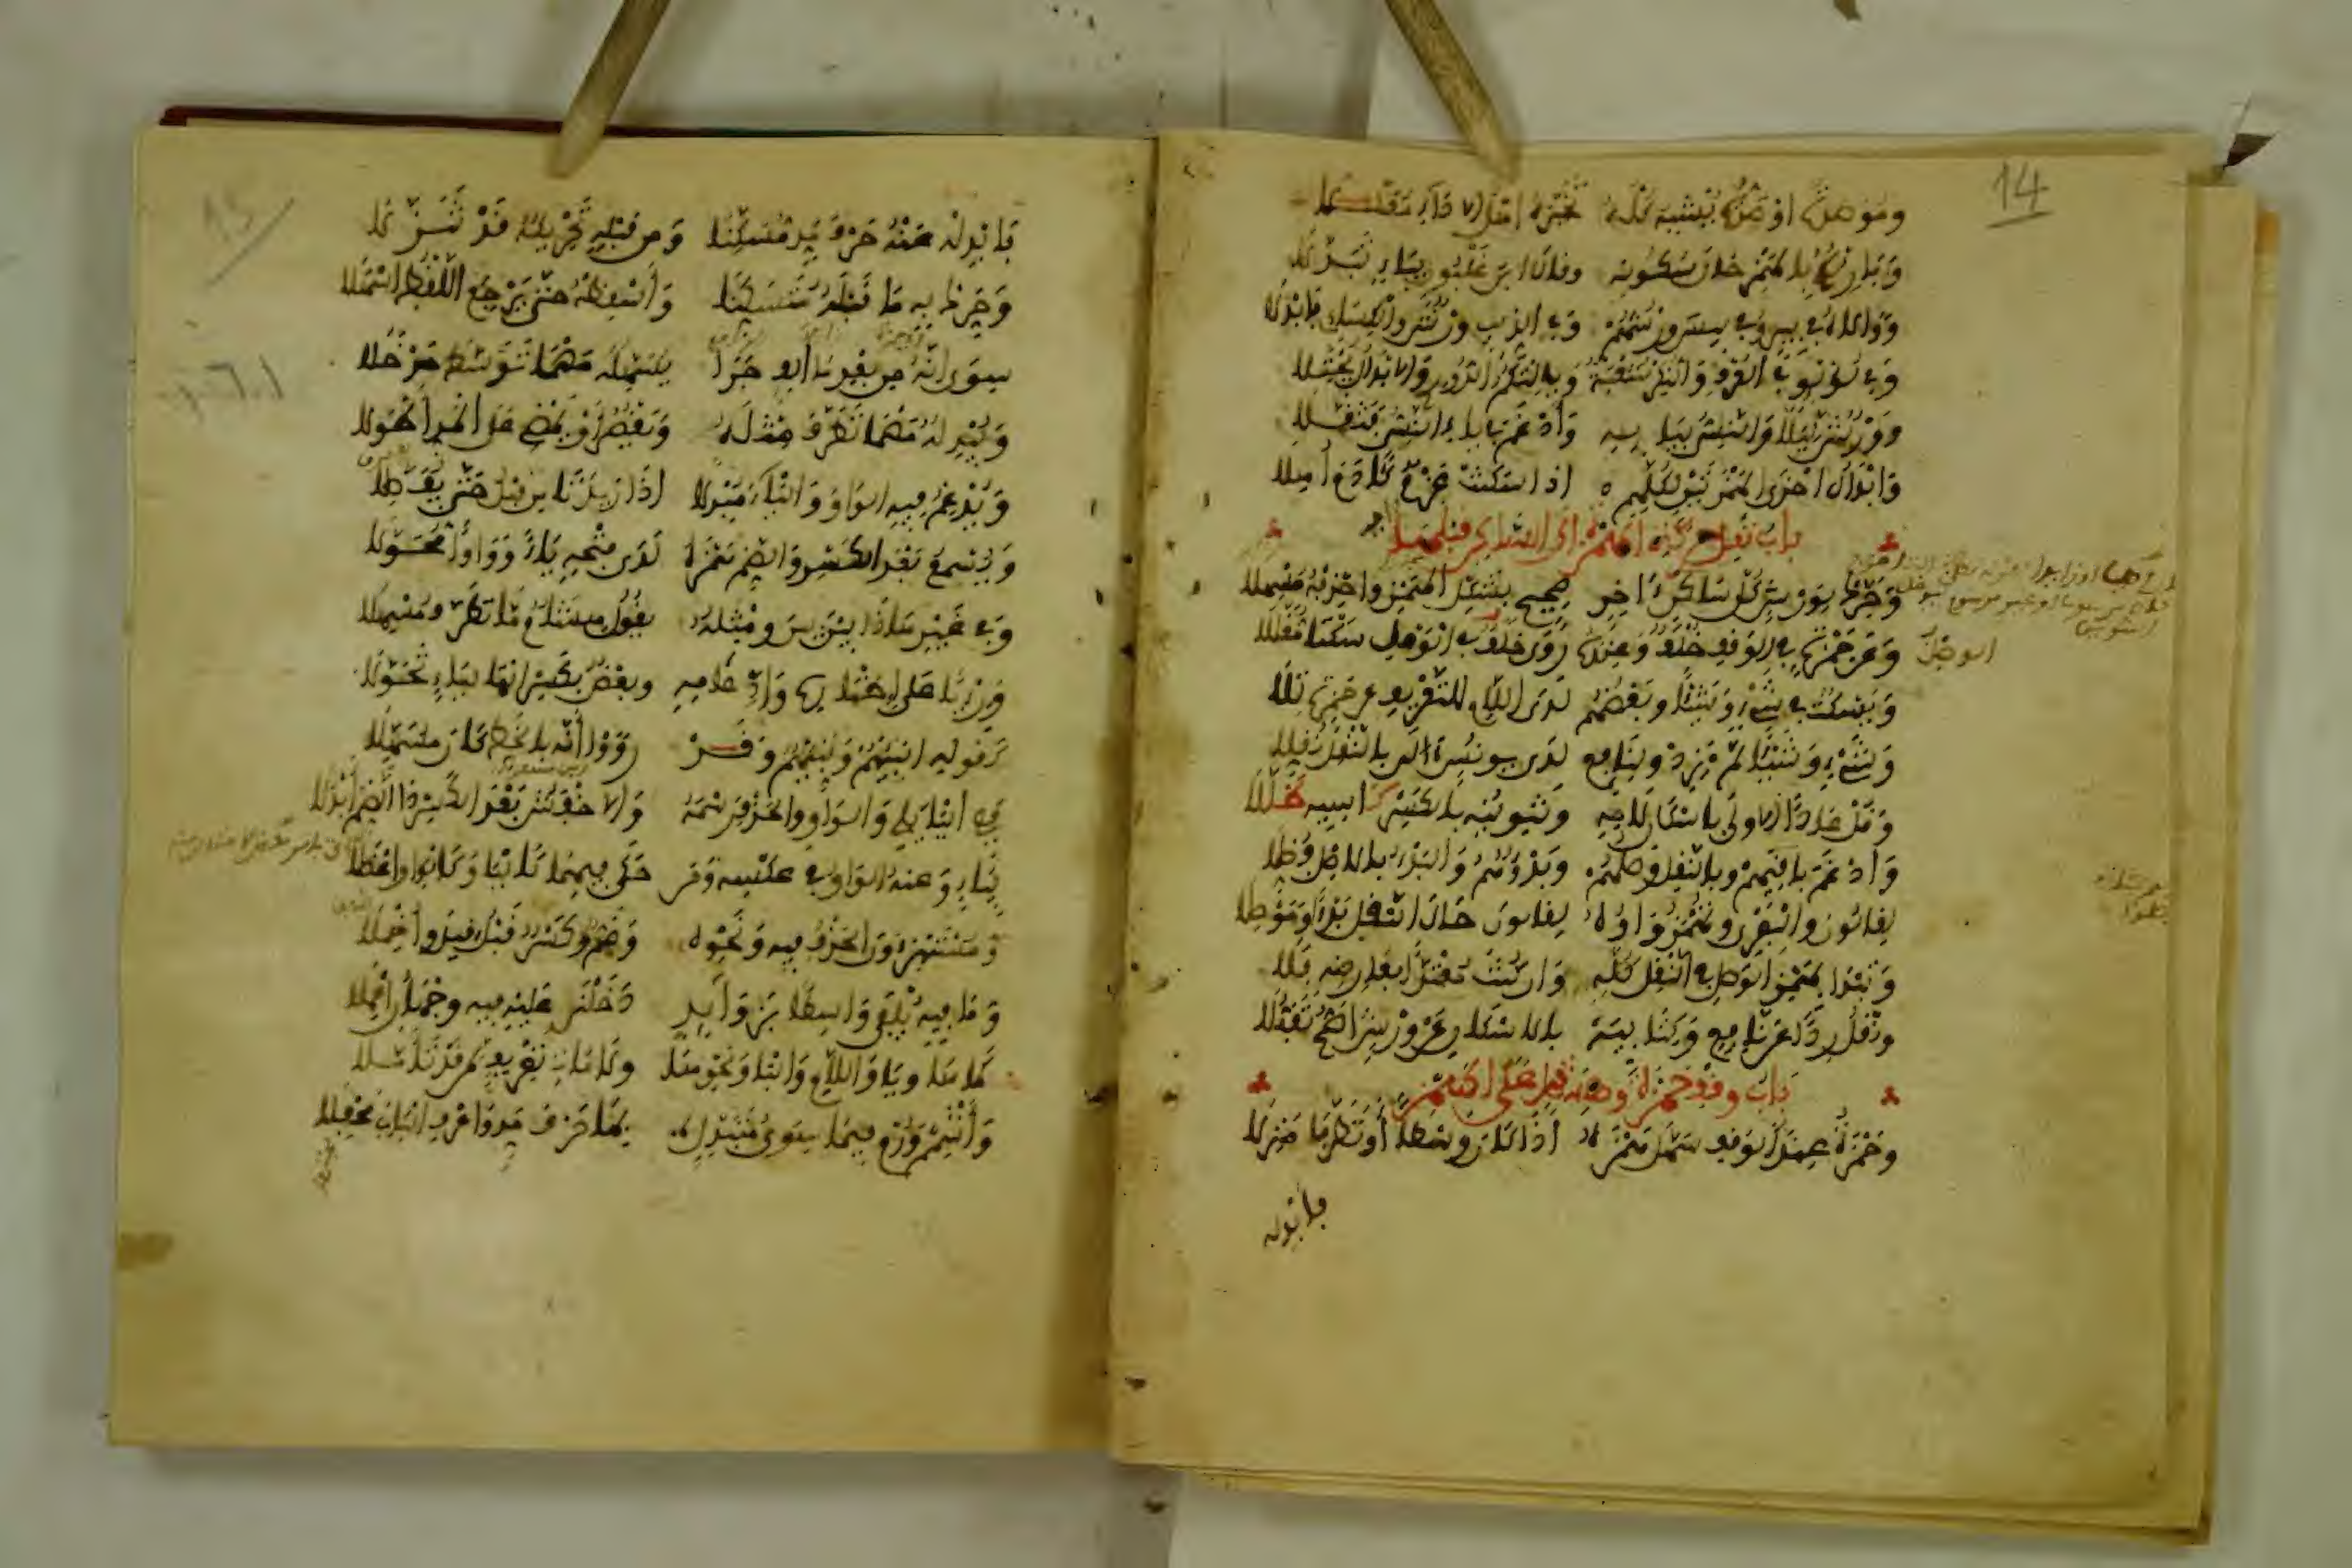 14
ومؤصدة أوصدت يشبه كله تخيره أهل الأداء معللا
وبارئكم بالهمز حال سكونه وقال ابن غلبون بياء تبدلا
ووالاه في بير وفي بيس ورشهم وفي الذيب ورش والكسائي فأبدلا
وفي لؤلؤ في العرف والنكر شعبة ويألتكم الدوري والابدال يجتلا
وورش ليلا والنسيء بيايه وأدغم في ياء النسي فثقلا
وابدال أخرى الهمزتين لكلهم اذا سكنت عزم كآدم أوهلا
باب نقل حركة الهمزة الى الساكن قبلها
وحرك لورش كل ساكن آخر صحيح بشكل الهمز واحذفه مسهلا
وعن حمزة في الوقف خلف وعنده روى خلف في الوصل سكتا مقللا
ويسكت في شيء وشيئا وبعضهم لدى اللام للتعريف عن حمزة تلا
وشيء وشيئا لم يزد ولنافع لدى يونس ءالان بالنقل نقلا
وقل عادا الاولى باسكان لامه وتنوينه بالكسر كاسيه ظللا
وأدغم باقيهم وبالنقل وصلهم وبدؤهم والبدء بالاصل فضلا
لقالون والبصري وتهمز واوه لقالون حال النقل بدءا وموصلا
وتبدا بهمز الوصل في النقل كله وان كنت معتدا بعارضه فلا
ونقل ردا عن نافع وكتابيه بالاسكان عن ورش اصح تقبلا
باب وقف حمزة وهشام على الهمز
وحمزة عند الوقف سهل همزه اذا كان وسطا أو تطرف منزلا
فأبدله
15
فأبدله عنه حرف مد مسكنا ومن قبله تحريكه قد تنزلا
وحرك به ما قبله متسكنا وأسقطه حتى يرجع اللفظ اسهلا
سوى أنه من بعد ما ألف جرا يسهله مهما توسط مدخلا
ويبدله مهما تطرف مثله ويقصر أو يمضي على المد أطولا
ويدغم فيه الواو والياء مبدلا اذا زيدتا من قبل حتى يفصلا
ويسمع بعد الكسر والضم همزه لدى فتحه ياء وواوا محولا
وفي غير هذا بين بين ومثله يقول هشام ما تطرف مسهلا
ورئيا على اظهاره وادغامه وبعض بكسر الها لياء تحولا
كقولك انبئهم ونبئهم وقد رووا أنه بالخط كان مسهلا
ففي اليا يلي والواو والحذف رسمه والاخفش بعد الكسر ذا الضم أبدلا
بياء وعنه الواو في عكسه ومن حكى فيهما كاليا وكالواو اعضلا
ومستهزءون الحذف فيه ونحوه وضم وكسر قبل قيل وأخملا
وما فيه يلفى واسطا بزوايد دخلن عليه فيه وجهان أعملا
كما ها ويا واللام والبا ونحوها ولامات تعريف لمن قد تأملا
وأشمم ورم فيما سوى متبدل بها حرف مد واعرف الباب محفلا